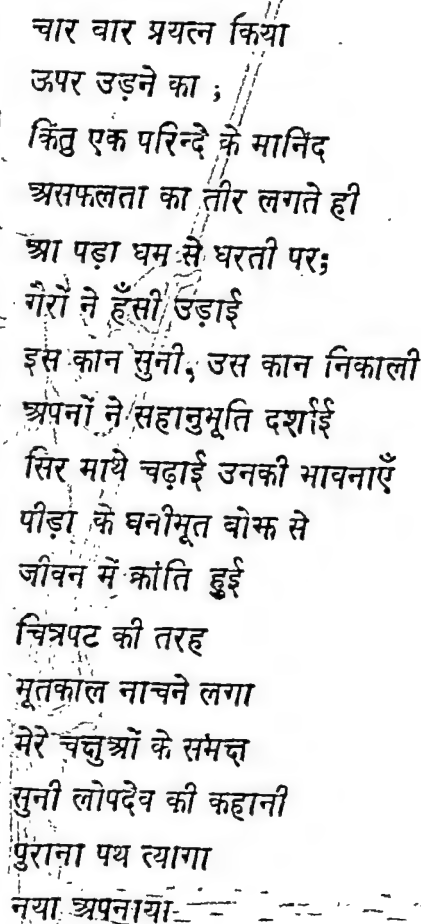 चार वार प्रयत्न किया
ऊपर उड़ने का ;
किंतु एक परिन्दे के मानिंद
असफलता का तीर लगते ही
आ पड़ा घम से धरती पर;
गैरों ने हँसी उड़ाई
इस कान सुनी, उस कान निकाली
अपनों ने सहानुभूति दर्शाई
सिर माथे चढ़ाई उनकी भावनाएँ
पीड़ा के घनीभूत बोझ से
जीवन में क्रांति हुई
चित्रपट की तरह
भूतकाल नाचने लगा
मेरे चक्षुओं के समक्ष
सुनी लोपदेव की कहानी
पुराना पथ त्यागा
नया अपनाया